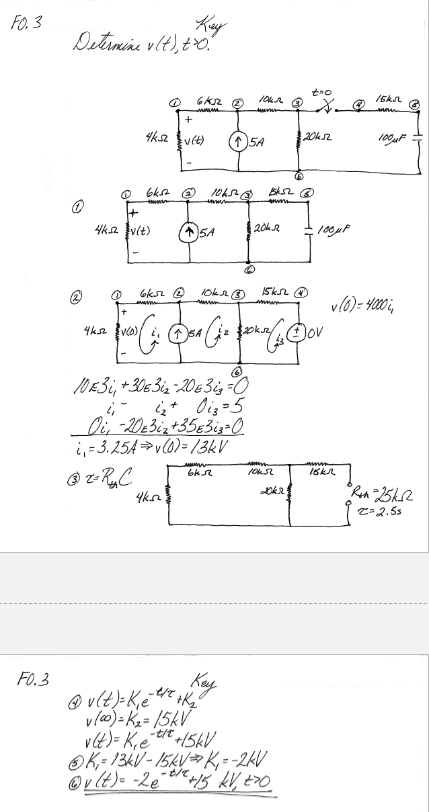 F0.3
Key
Determine v(t), t>0.
① 6kΩ ② 10kΩ ③ t=0 ④ 15kΩ ⑤
4kΩ + v(t) - ↑ 5A 20kΩ 100μF
⓪
①
① 6kΩ ② 10kΩ ③ 15kΩ ⑤
4kΩ + v(t) - ↑ 5A 20kΩ 100μF
⓪
②
① 6kΩ ② 10kΩ ③ 15kΩ ④
v(0)=4000i₁
4kΩ + v(0) - i₁ ↑ 5A i₂ 20kΩ i₃ + 0V
⓪
10E3i₁+30E3i₂-20E3i₃=0
i₁- i₂+ 0i₃=5
0i₁-20E3i₂+35E3i₃=0
i₁=3.25A⇒v(0)=13kV
③ τ=RₜₕC
6kΩ 10kΩ 15kΩ
4kΩ 20kΩ Rₜₕ=25kΩ
τ=2.5s
F0.3
Key
④ v(t)=K₁e^-t/τ+K₂
v(∞)=K₂=15kV
v(t)=K₁e^-t/τ+15kV
⑤ K₁=13kV-15kV⇒K₁=-2kV
⑥ v(t)=-2e^-t/τ+15 kV, t>0